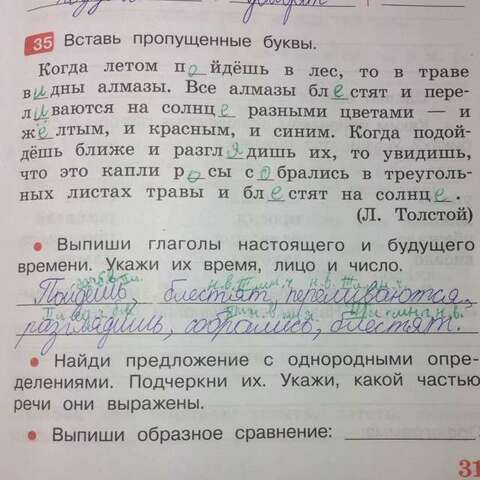 35 Вставь пропущенные буквы.
Когда летом пойдёшь в лес, то в траве
видны алмазы. Все алмазы блестят и пере-
ливаются на солнце разными цветами — и
жёлтым, и красным, и синим. Когда подой-
дёшь ближе и разглядишь их, то увидишь,
что это капли росы собрались в треуголь-
ных листах травы и блестят на солнце.
(Л. Толстой)
• Выпиши глаголы настоящего и будущего
времени. Укажи их время, лицо и число.
Пойдёшь, блестят, переливаются,
разглядишь, собрались, блестят.
• Найди предложение с однородными опре-
делениями. Подчеркни их. Укажи, какой частью
речи они выражены.
• Выпиши образное сравнение:
31